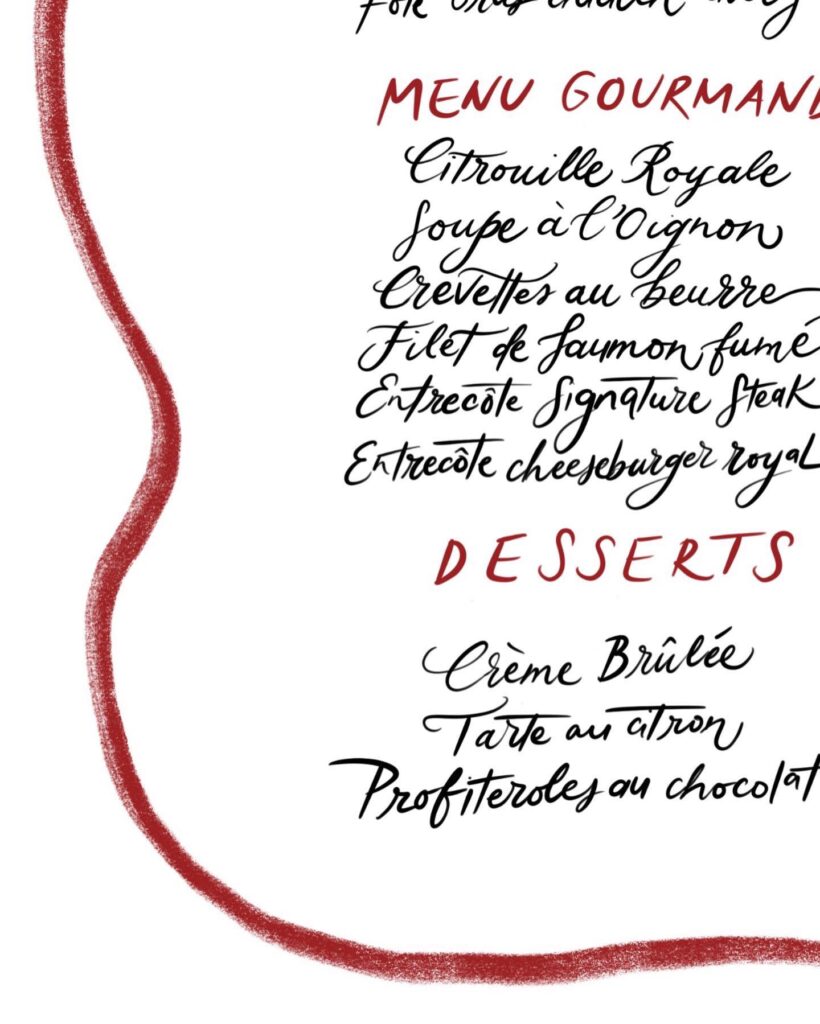 Foie Gras
MENU GOURMAND
Citrouille Royale
Soupe à l'Oignon
Crevettes au beurre
Filet de Saumon fumé
Entrecôte Signature Steak
Entrecôte cheeseburger royal
DESSERTS
Crème Brûlée
Tarte au citron
Profiteroles au chocolat